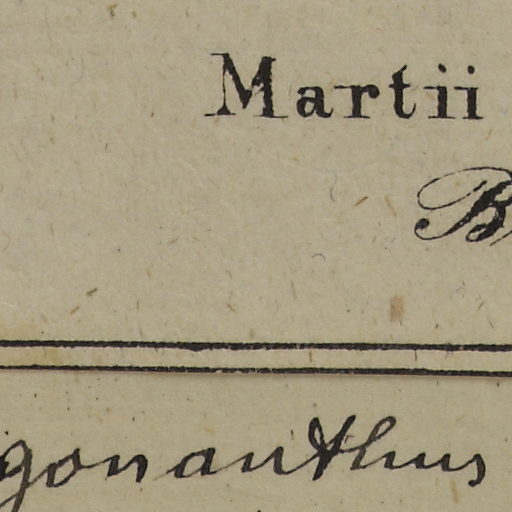 Martii
B
gonanthus